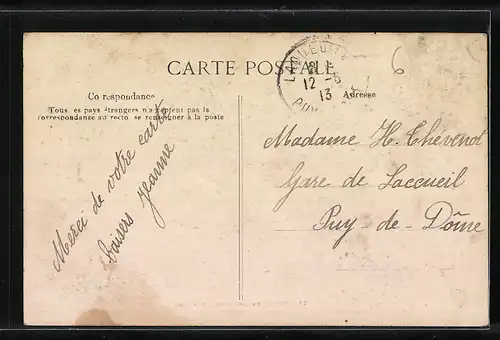 CARTE POSTALE
LAQUEUI
12 -5
13
PUY
Correspondance
Tous les pays étrangers n'acceptent pas la
correspondance au recto se renseigner à la poste
Adresse
Merci de votre carte
Baisers Jeanne
Madame H. Thévenot
Gare de Laccueil
Puy-de-Dôme
6